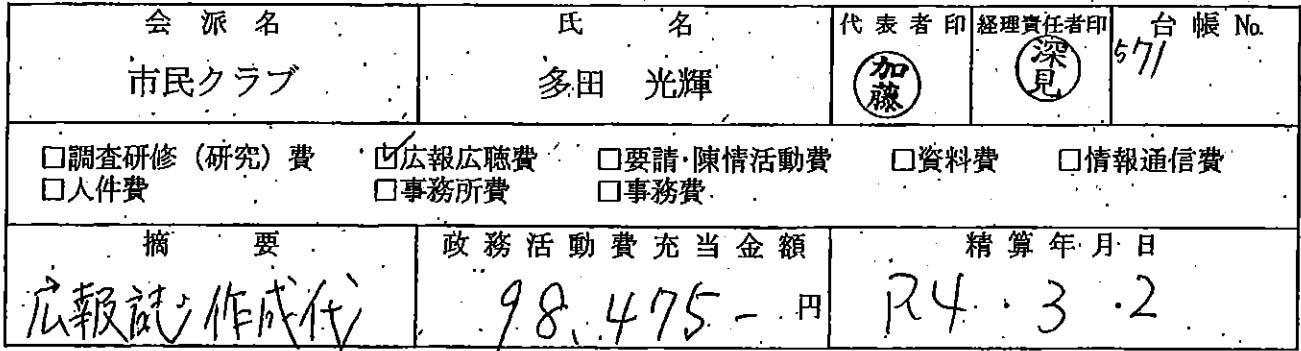 会派名 氏名 代表者印 経理責任者印 台帳No.
市民クラブ 多田 光輝 加藤 深見 571
□調査研修（研究）費 ☑広報広聴費 □要請・陳情活動費 □資料費 □情報通信費
□人件費 □事務所費 □事務費
摘要 政務活動費充当金額 精算年月日
広報誌作成代 98,475- 円 R4・3・2